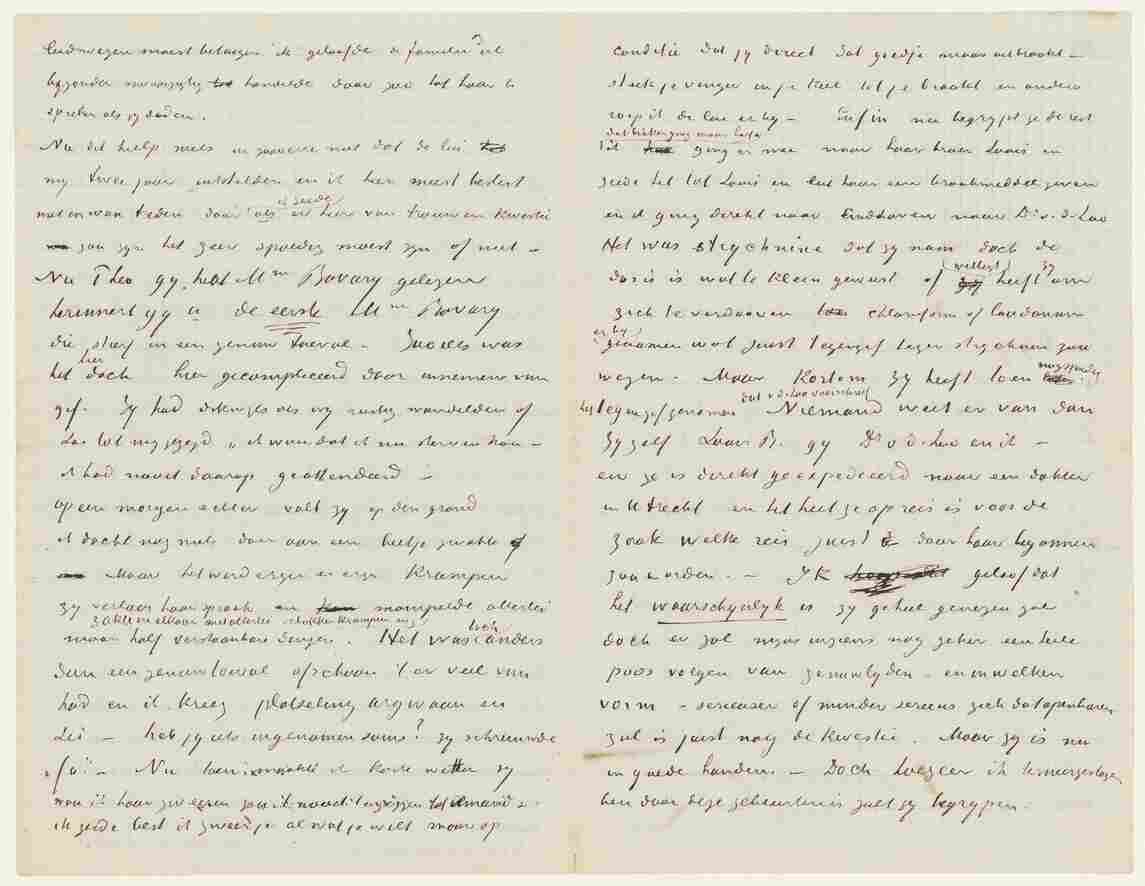 leidwezen moest betuigen ik geloofde de familie dit
byzonder onvoorzigtig handelde door zoo tot haar te
spreken als zy deden.
Nu dit hielp niets in zooverre niet dat de lui
my twee jaar uitstelden en ik hier moest beslist
niet in wou treden daar als er hier van trouwen kwestie
ik zeide
zou zyn het zeer spoedig moest zyn of niet –
Nu Theo gy hebt Mme Bovary gelezen
herinnert gy u de eerste Mme Bovary
die stierf in een zenuw toeval. Zoo iets was
het hier doch hier gecompliceerd door innemen van
gif. Zy had dikwijls als wy rustig wandelden of
zoo tot my gezegd „ik wou dat ik nu sterven kon –
ik had nooit daarop geattendeerd –
op een morgen echter valt zy op den grond
ik dacht nog niets dan aan een beetje zwakte
Maar het werd erger en erger Krampen
zy verloor haar spraak en mompelde allerlei
zakte in elkaar met allerlei schokken krampen enz
maar half verstaanbare dingen. Het was toch anders
dan een zenuwtoeval ofschoon 't er veel van
had en ik kreeg plotseling argwaan en
zei – heb jy iets ingenomen soms? zy schreeuwde
„ja". – Nu toen ik korte wetten zy
wou ik haar zweeren zou ik nooit zeggen tot iemand –
ik zeide best ik zweer je al wat je wilt maar op
conditie dat jy direct dat goedje maar uitbraakt –
steek je vinger in je keel tot je braakt en anders
roep ik de lui er by – Enfin nu begrypt ge de rest
dat braken ging maar half
ik ging er mee naar haar broer Louis en
zeide het tot Louis en liet haar een braakmiddel geven
en ik ging direkt naar Eindhoven naar Dr v.d. Loo
Het was strychnine dat zy nam doch de
dosis is wat te klein geweest of (wellicht) heeft zy om
zich te verdooven chloroform of laudanum
er by
genomen wat juist tegengif tegen strychnine zou
wezen. Maar kortom zy heeft toen nog spoedig
het tegengif genomen dat v d Loo voorschreef Niemand weet er van dan
zy zelf Louis B. gy Dr v d Loo en ik –
en ze is direkt geexpedieerd naar een dokter
in Utrecht en het heet ze op reis is voor de
zaak welke reis juist door haar begonnen
zou worden. – Ik geloof dat
het waarschynlyk is zy geheel genezen zal
doch er zal myns inziens nog zeker een heele
poos volgen van zenuwlyden – en in welken
vorm – serieuser of minder serieus zich dat openbaren
zal is juist nog de kwestie. Maar zy is nu
in goede handen. – Doch hoezeer ik terneergeslagen
ben door deze gebeurtenis zult gy begrypen.